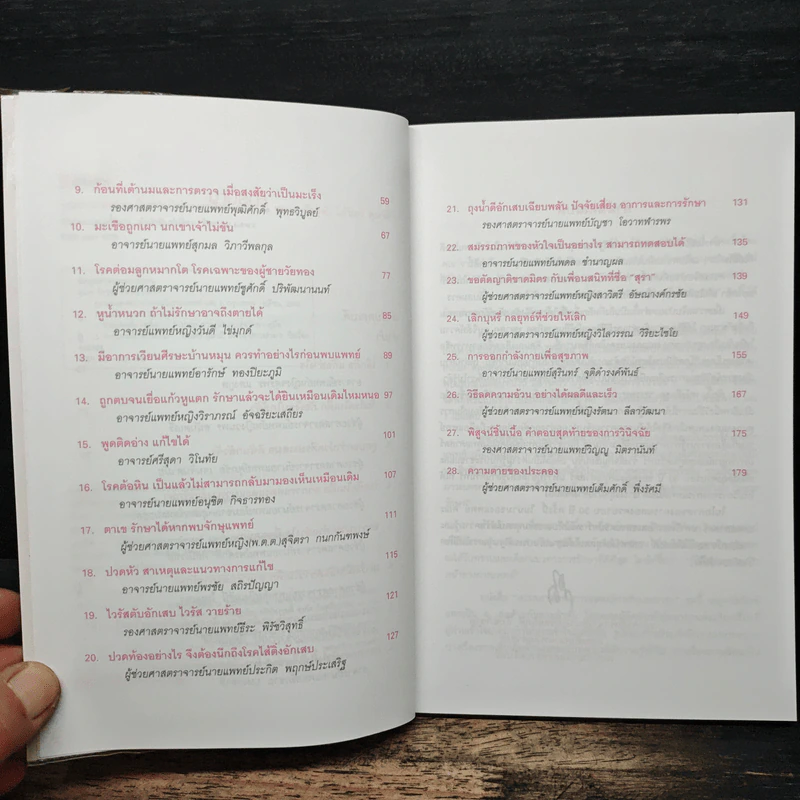 9. ก้อนที่เต้านมและการตรวจ เมื่อสงสัยว่าเป็นมะเร็ง 59
รองศาสตราจารย์นายแพทย์พุฒิศักดิ์ พุทธวิบูลย์
10. มะเขือถูกเผา นกเขาเจ้าไม่ขัน 67
อาจารย์นายแพทย์สุกมล วิภาวีพลกุล
11. โรคต่อมลูกหมากโต โรคเฉพาะของผู้ชายวัยทอง 77
ผู้ช่วยศาสตราจารย์นายแพทย์ชูศักดิ์ ปริพัฒนานนท์
12. หูน้ำหนวก ถ้าไม่รักษาอาจถึงตายได้ 85
อาจารย์แพทย์หญิงวันดี ไข่มุกด์
13. มีอาการเวียนศีรษะบ้านหมุน ควรทำอย่างไรก่อนพบแพทย์ 89
อาจารย์นายแพทย์อารักษ์ ทองปิยะภูมิ
14. ถูกตบจนเยื่อแก้วหูแตก รักษาแล้วจะได้ยินเหมือนเดิมไหมหนอ 97
อาจารย์แพทย์หญิงวิราภรณ์ อัจฉริยะเสถียร
15. พูดติดอ่าง แก้ไขได้ 101
อาจารย์ศรีสุดา วิโนทัย
16. โรคต้อหิน เป็นแล้วไม่สามารถกลับมามองเห็นเหมือนเดิม 107
อาจารย์นายแพทย์อนุชิต กิจธารทอง
17. ตาเข รักษาได้หากพบจักษุแพทย์ 111
ผู้ช่วยศาสตราจารย์แพทย์หญิง(พ.ต.ต.)สุจิตรา กนกกันฑพงษ์
18. ปวดหัว สาเหตุและแนวทางการแก้ไข 115
อาจารย์นายแพทย์พรชัย สถิรปัญญา
19. ไวรัสตับอักเสบ ไวรัส วายร้าย 121
รองศาสตราจารย์นายแพทย์ธีระ พิรัชวิสุทธิ์
20. ปวดท้องอย่างไร จึงต้องนึกถึงโรคไส้ติ่งอักเสบ 127
ผู้ช่วยศาสตราจารย์นายแพทย์ประกิต พฤกษ์ประเสริฐ
21. ถุงน้ำดีอักเสบเฉียบพลัน ปัจจัยเสี่ยง อาการและการรักษา 131
รองศาสตราจารย์นายแพทย์บัญชา โอวาทฬารพร
22. สมรรถภาพของหัวใจเป็นอย่างไร สามารถทดสอบได้ 135
อาจารย์นายแพทย์นพดล ชำนาญผล
23. ขอตัดญาติขาดมิตร กับเพื่อนสนิทที่ชื่อ "สุรา" 139
ผู้ช่วยศาสตราจารย์แพทย์หญิงสาวิตรี อัษณางค์กรชัย
24. เลิกบุหรี่ กลยุทธ์ที่ช่วยให้เลิก 149
ผู้ช่วยศาสตราจารย์แพทย์หญิงวิไลวรรณ วิริยะไชโย
25. การออกกำลังกายเพื่อสุขภาพ 155
อาจารย์นายแพทย์สุรินทร์ จุติดำรงค์พันธ์
26. วิธีลดความอ้วน อย่างได้ผลดีและเร็ว 167
ผู้ช่วยศาสตราจารย์แพทย์หญิงรัตนา ลีลาวัฒนา
27. พิสูจน์ชิ้นเนื้อ คำตอบสุดท้ายของการวินิจฉัย 175
รองศาสตราจารย์นายแพทย์วิญญู มิตรานันท์
28. ความตายของประคอง 179
ผู้ช่วยศาสตราจารย์นายแพทย์เต็มศักดิ์ พึ่งรัศมี